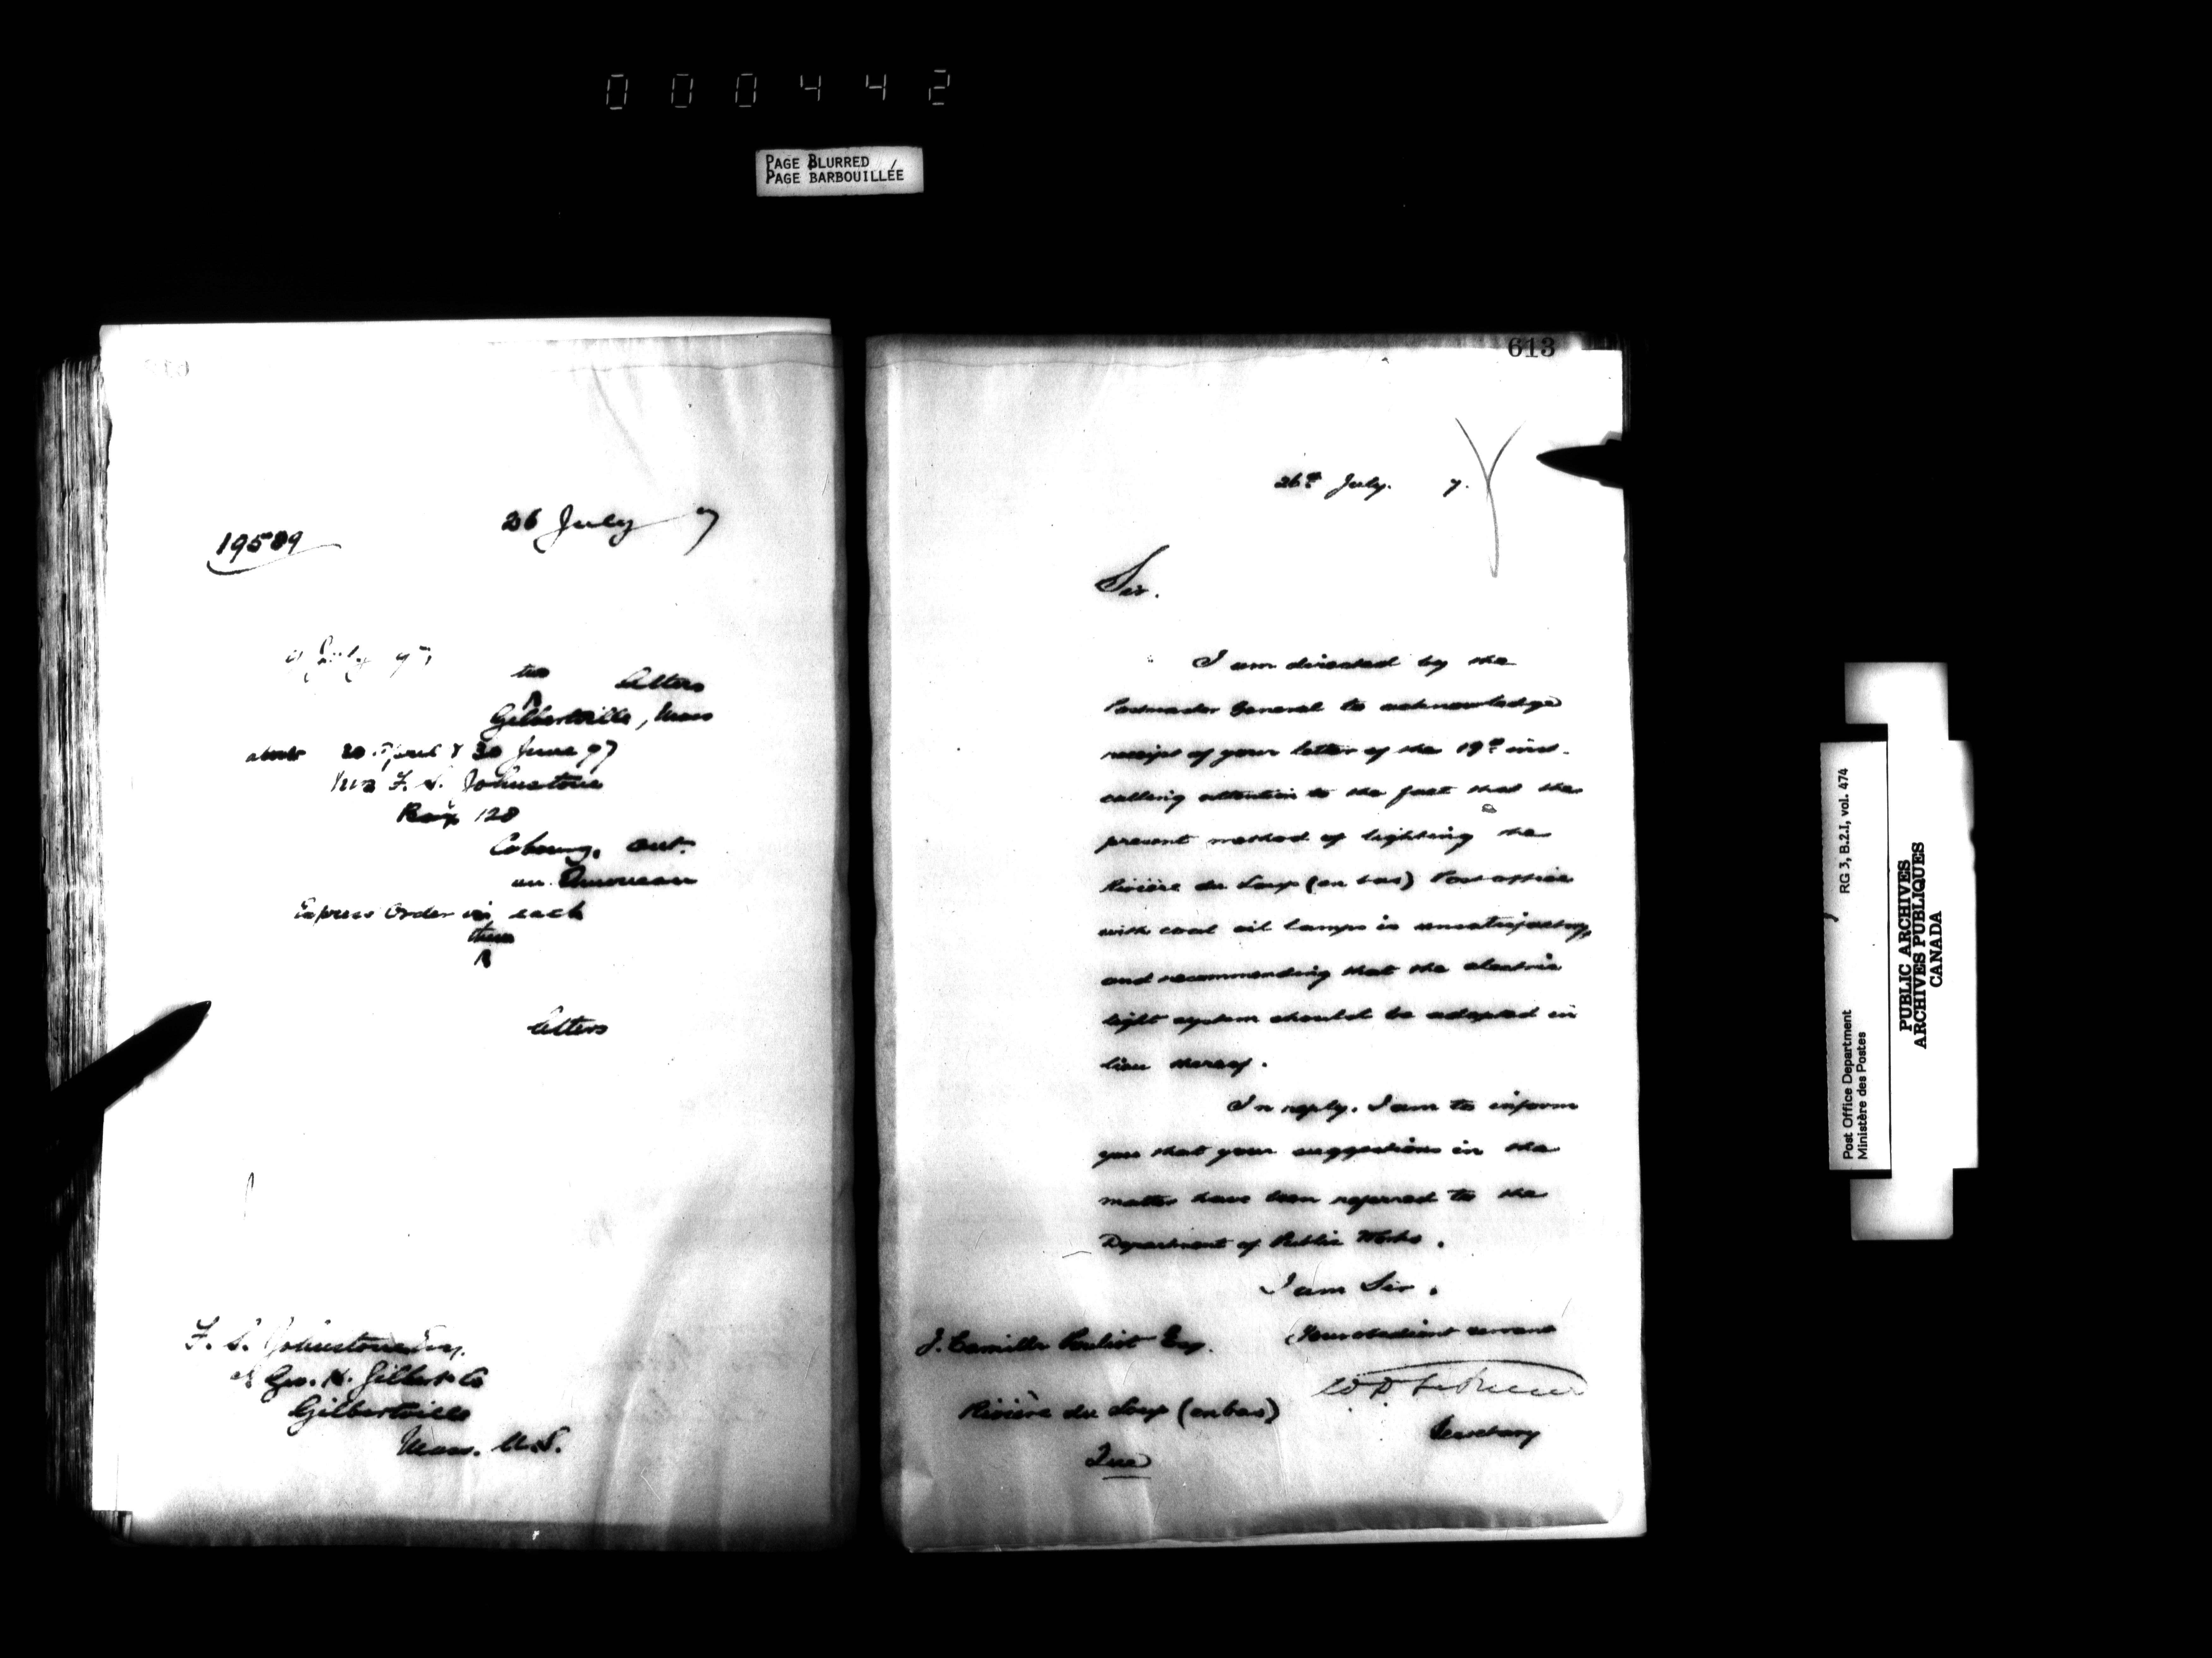 000442
PAGE BLURRED
PAGE BARBOUILLÉE
19589
26 July 7
July 97
two letters
Gilbertville, Mass
about 20 April & 30 June 97
Mrs F. S. Johnstone
Box 128
Cobourg, Ont.
an American
Express Order in each
these
letters
F. S. Johnstone Esq.
c/o Geo. H. Gilbert Co
Gilbertville
Mass. U.S.
613
26th July. 7.
Sir.
I am directed by the
Postmaster General to acknowledge
receipt of your letter of the 19th inst.
calling attention to the fact that the
present method of lighting the
Rivière du Loup (en bas) Post office
with coal oil lamps is unsatisfactory,
and recommending that the electric
light system should be adopted in
lieu thereof.
In reply, I am to inform
you that your suggestions in the
matter have been referred to the
Department of Public Works.
I am Sir.
Your obedient servant
Secretary
J. Camille Pouliot Esq.
Rivière du Loup (en bas)
Que
Post Office Department
Ministère des Postes
RG 3, B.2.I, vol. 474
PUBLIC ARCHIVES
ARCHIVES PUBLIQUES
CANADA